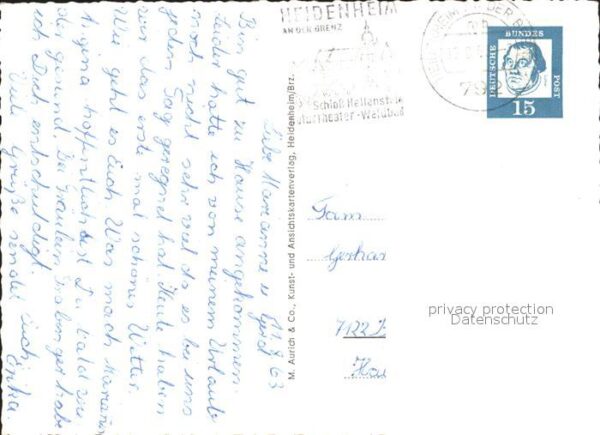 HEIDENHEIM
AN DER BRENZ
Schloß Hellenstein
Naturtheater - Waldbad
79
DEUTSCHE BUNDES POST
15
11.8.63
Liebe Marianne u. Gerd
Bin gut zu Hause angekommen.
Leider hatte ich von meinem Urlaub
noch nicht sehr viel da es bei uns
jeden Tag geregnet hat. Heute haben
wir das erste mal schönes Wetter.
Wie geht es Euch. Was macht Mariannes
Angina hoffentlich bist Du bald wie-
der gesund. Bei Fräulein habe
ich Dich entschuldigt.
Viele Grüße sendet Euch
Erika.
M. Aurich & Co., Kunst- und Ansichtskartenverlag, Heidenheim/Brz.
Fam.
Gerhar
7122
Hau
privacy protection
Datenschutz